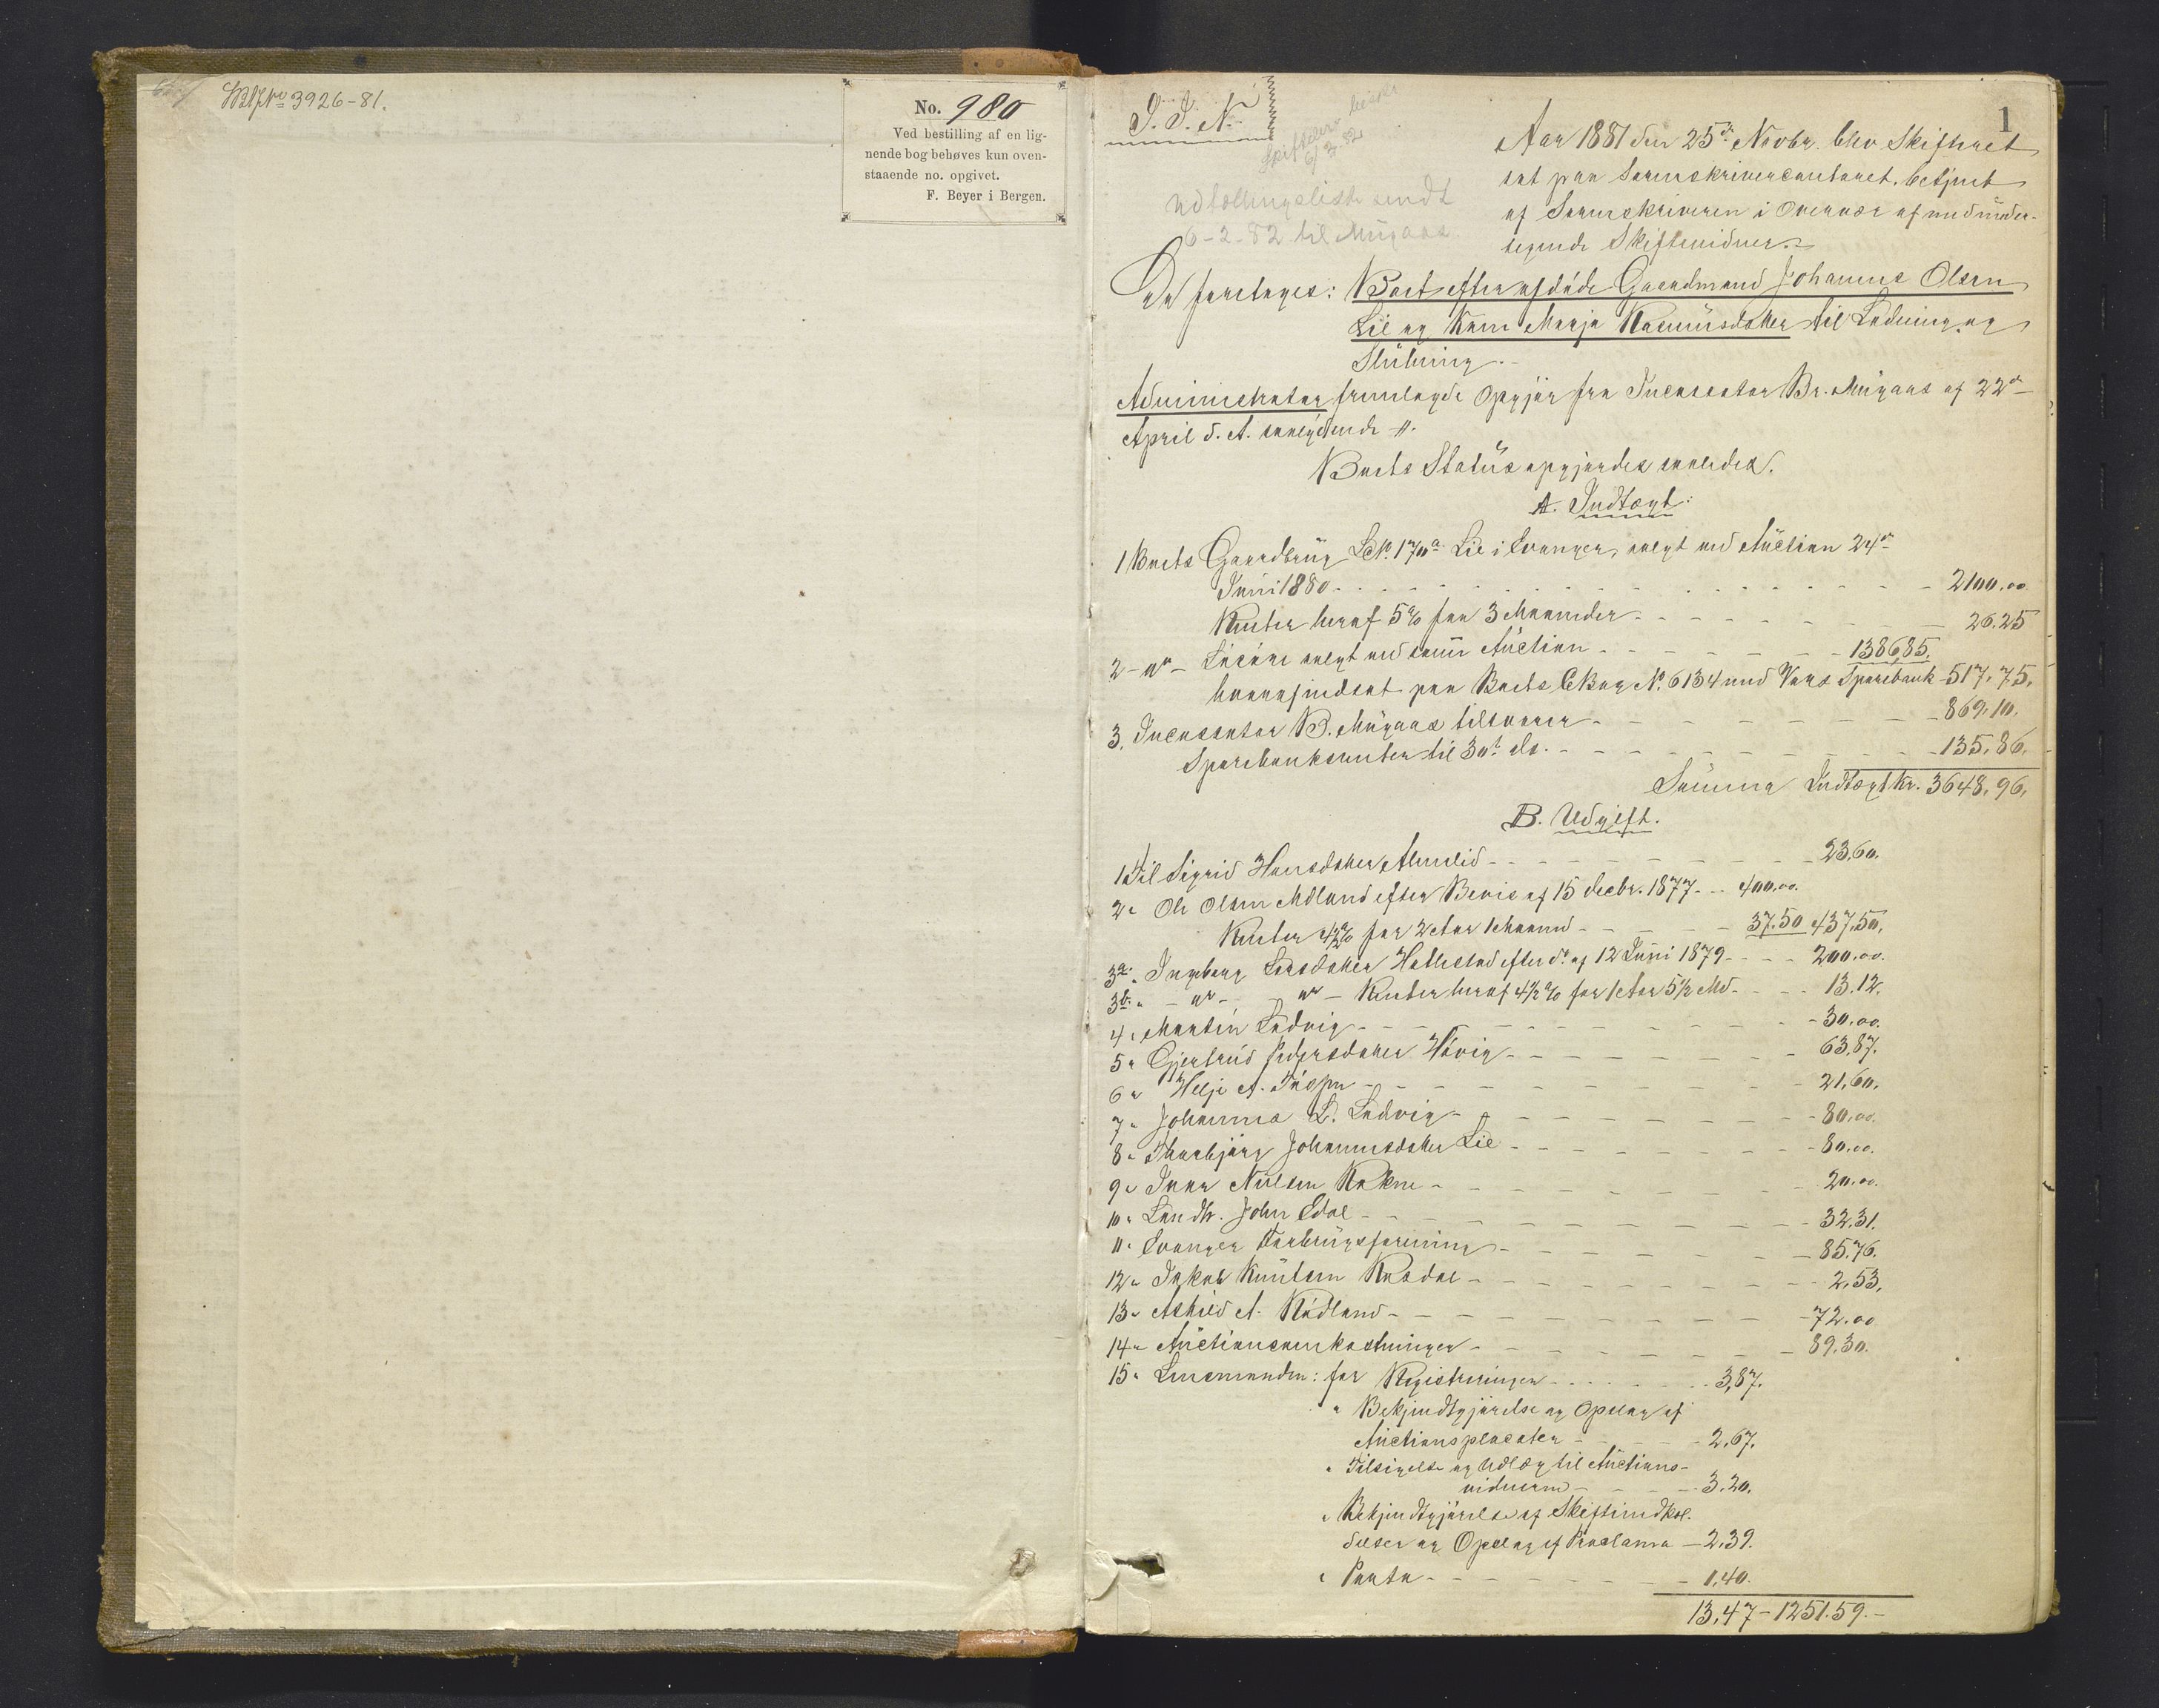 No 3926-81.
No. 980
Ved bestilling af en lig-
nende bog behøves kun oven-
staaende no. opgivet.
F. Beyer i Bergen.
1
I. J. N.
Udlodningsliste sendt
6-2-82 til Mügaas.
Aar 1881 den 25de Novbr. blev Skifteret
sat paa Sorenskrivercontoret, betjent
af Sorenskriveren i Overvær af medunder-
tegnede Skiftevidner.
Da foretoges: Boet efter afdøde Gaardmand Johannes Olsen
Lië og Kone Marja Rasmüsdatter til Lodning og
Slütning.
Administrator fremlagde Opgjør fra Incassator Br. Mügaas af 22de
April d. A. saalydende //.
Boets Statüs opgjordes saaledes.
A. Indtægt:
1 Boets Gaardbrüg LNo. 170a Lië i Evanger, solgt ved Aüction 24de
Jüni 1880 - 2100.00
Renter heraf 5% for 3 Maaneder - 26.25
2 - do - Løsøre solgt ved samme Aüction - 1386,85.
hvoraf indsat paa Boets CBog No. 6134 med Voss Sparebank - 517,75.
3. Incassator B. Mügaas tilsvarer - 869,10.
Sparebanksrenter til 30te ds. - 135,86.
Sümma Indtægt Kr. 3648,96.
B. Udgift.
1 Til Sigrid Hansdatter Almelid - 23,60.
2 " Ole Olsen Mæland efter Bevis af 15 Decbr. 1877 - 400,00.
Renter 4½% for 2 Aar 1 Maaned - 37.50 437,50.
3a. " Ingeborg Larsdatter Hallestad efter do. af 12 Jüni 1879 - 200.00.
3b. " - do - do - Renter heraf 4½% for 1 Aar 5½ Md - 13.12.
4 " Martin Ladvig - 30,00.
5 " Gjertrüd Pedersdatter Høvig - 63,87.
6 " Helje A. - 21,60.
7 " Johannes L. Ladvig - 80,00.
8 " Thorbjørg Johannesdatter Lië - 80,00.
9 " Ivar Nielsen Rokne - 20.00.
10 " Landh. John Edal - 32.31.
11 " Evanger Forbrügsforening - 85.76.
12 " Jakob Knütsen Rasdal - 2,53.
13 " Askild A. Rødland - 72.00
14 " Aüctionsomkostninger - 89.30.
15 " Lensmanden: for Registreringen - 3,87.
" Bekjendtgjørelse og Opslag af
Aüctionsplacater - 2,67.
" Tilsigelse og Udlæg til Aüctions-
vidnerne - 3.20.
" Bekjendtgjørelse af Skifteindkal-
delser og Opslag af Proclama - 2,39.
" Porto - 1,40.
13,47 - 1251.59.-